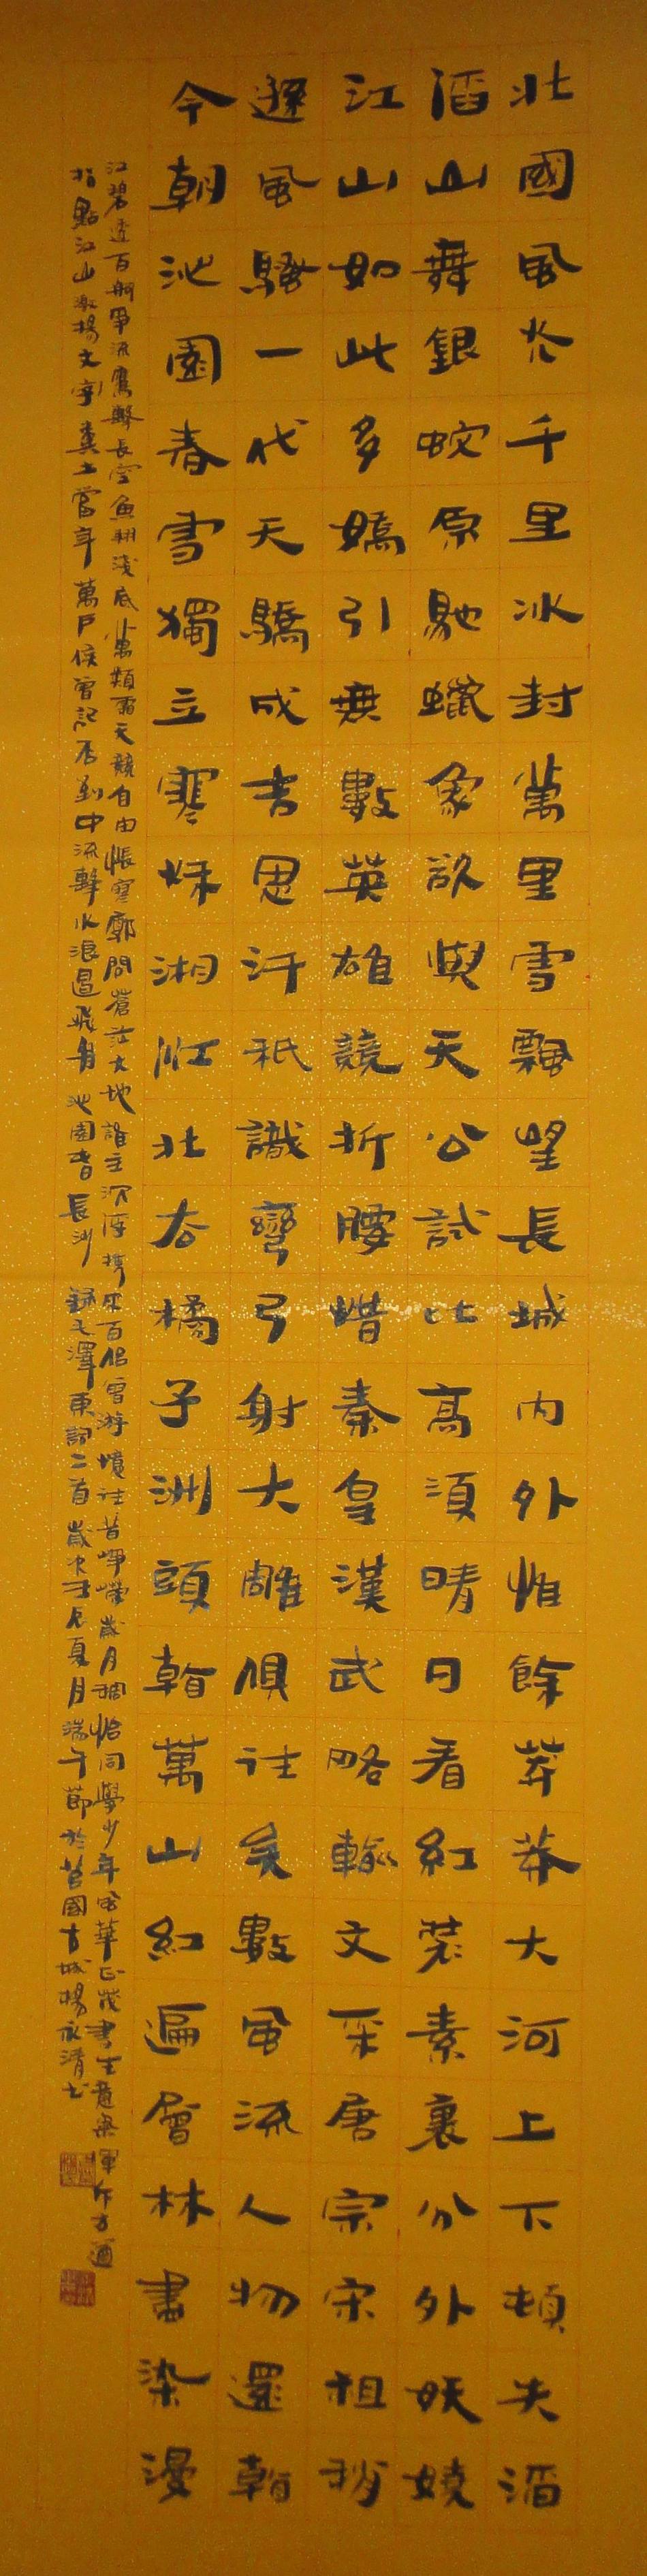 北國風光千里冰封萬里雪飄望長城內外惟餘莽莽大河上下頓失滔
滔山舞銀蛇原馳蠟象欲與天公試比高須晴日看紅裝素裹分外妖嬈
江山如此多嬌引無數英雄競折腰惜秦皇漢武略輸文采唐宗宋祖稍
遜風騷一代天驕成吉思汗祇識彎弓射大雕俱往矣數風流人物還看
今朝沁園春雪獨立寒秋湘江北去橘子洲頭看萬山紅遍層林盡染漫
江碧透百舸爭流鷹擊長空魚翔淺底萬類霜天競自由悵寥廓問蒼茫大地誰主沉浮攜來百侶曾游憶往昔崢嶸歲月稠恰同學少年風華正茂書生意氣揮斥方遒
指點江山激揚文字糞土當年萬戶侯曾記否到中流擊水浪遏飛舟沁園春長沙 錄毛澤東詞二首歲次壬辰夏月端午節於莒國古城楊永清書